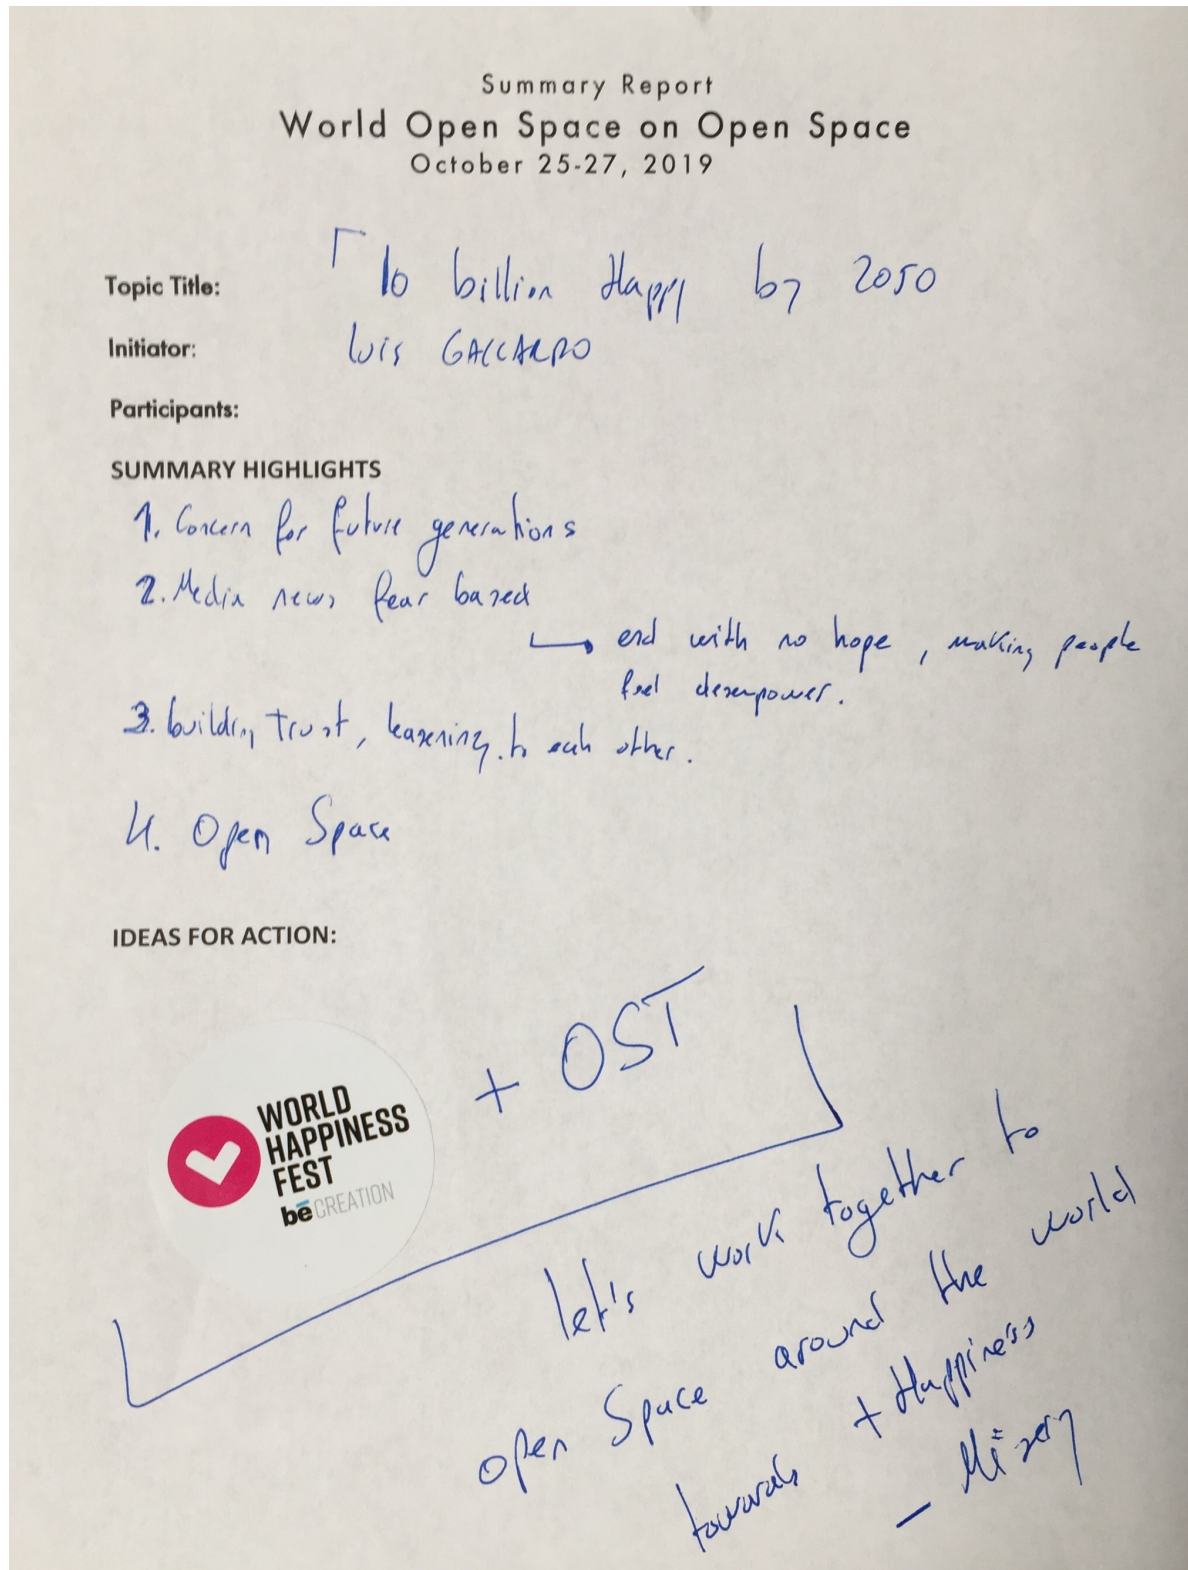 Summary Report
World Open Space on Open Space
October 25-27, 2019
Topic Title: 10 billion Happy by 2050
Initiator: Luis GALLARDO
Participants:
SUMMARY HIGHLIGHTS
1. Concern for future generations
2. Media news fear based
end with no hope, making people
feel desempower.
3. building trust, to each other.
4. Open Space
IDEAS FOR ACTION:
+ OST
WORLD
HAPPINESS
FEST
bē CREATION
let's work together to
open Space around the world
towards + Happiness
– Misery